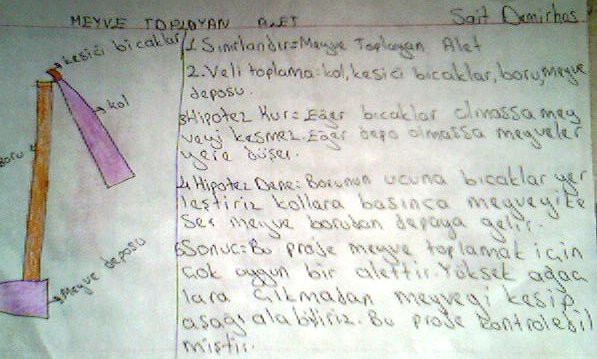 MEYVE TOPLAYAN ALET
Sait Demirbas
kesici bıcaklar
kol
boru
Meyve deposu
1. Sınırlandır=Meyve Toplayan Alet
2. Veli toplama=kol, kesici bıcaklar, boru, meyve
deposu.
3Hipotez Kur= Eğer bıcaklar olmassa mey
veyi kesmez. Eğer depo olmassa meyveler
yere düşer.
4. Hipotez Dene: Borunun ucuna bıcaklar yer
leştiriz kollara basınca meyveyi ke
ser meyve borudan depaya gelir.
5Sonuc: Bu proje meyve toplamak icin
cok uygun bir alettir. Yüksek ağac
lara cıkmadan meyveyi kesip
aşağı alabiliriz. Bu proje kontrol edil
miştir.